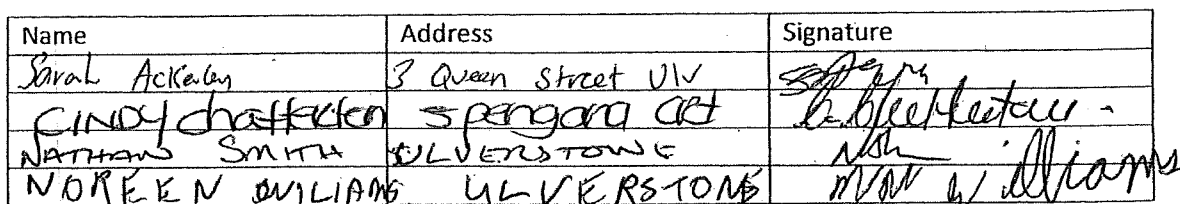 Name Address Signature
Sarah Ackerley 3 Queen Street Ulv
CINDY chatterton 5 pengana crt
NATHAN SMITH ULVERSTONE
NOREEN WILIAMS ULVERSTONE williams